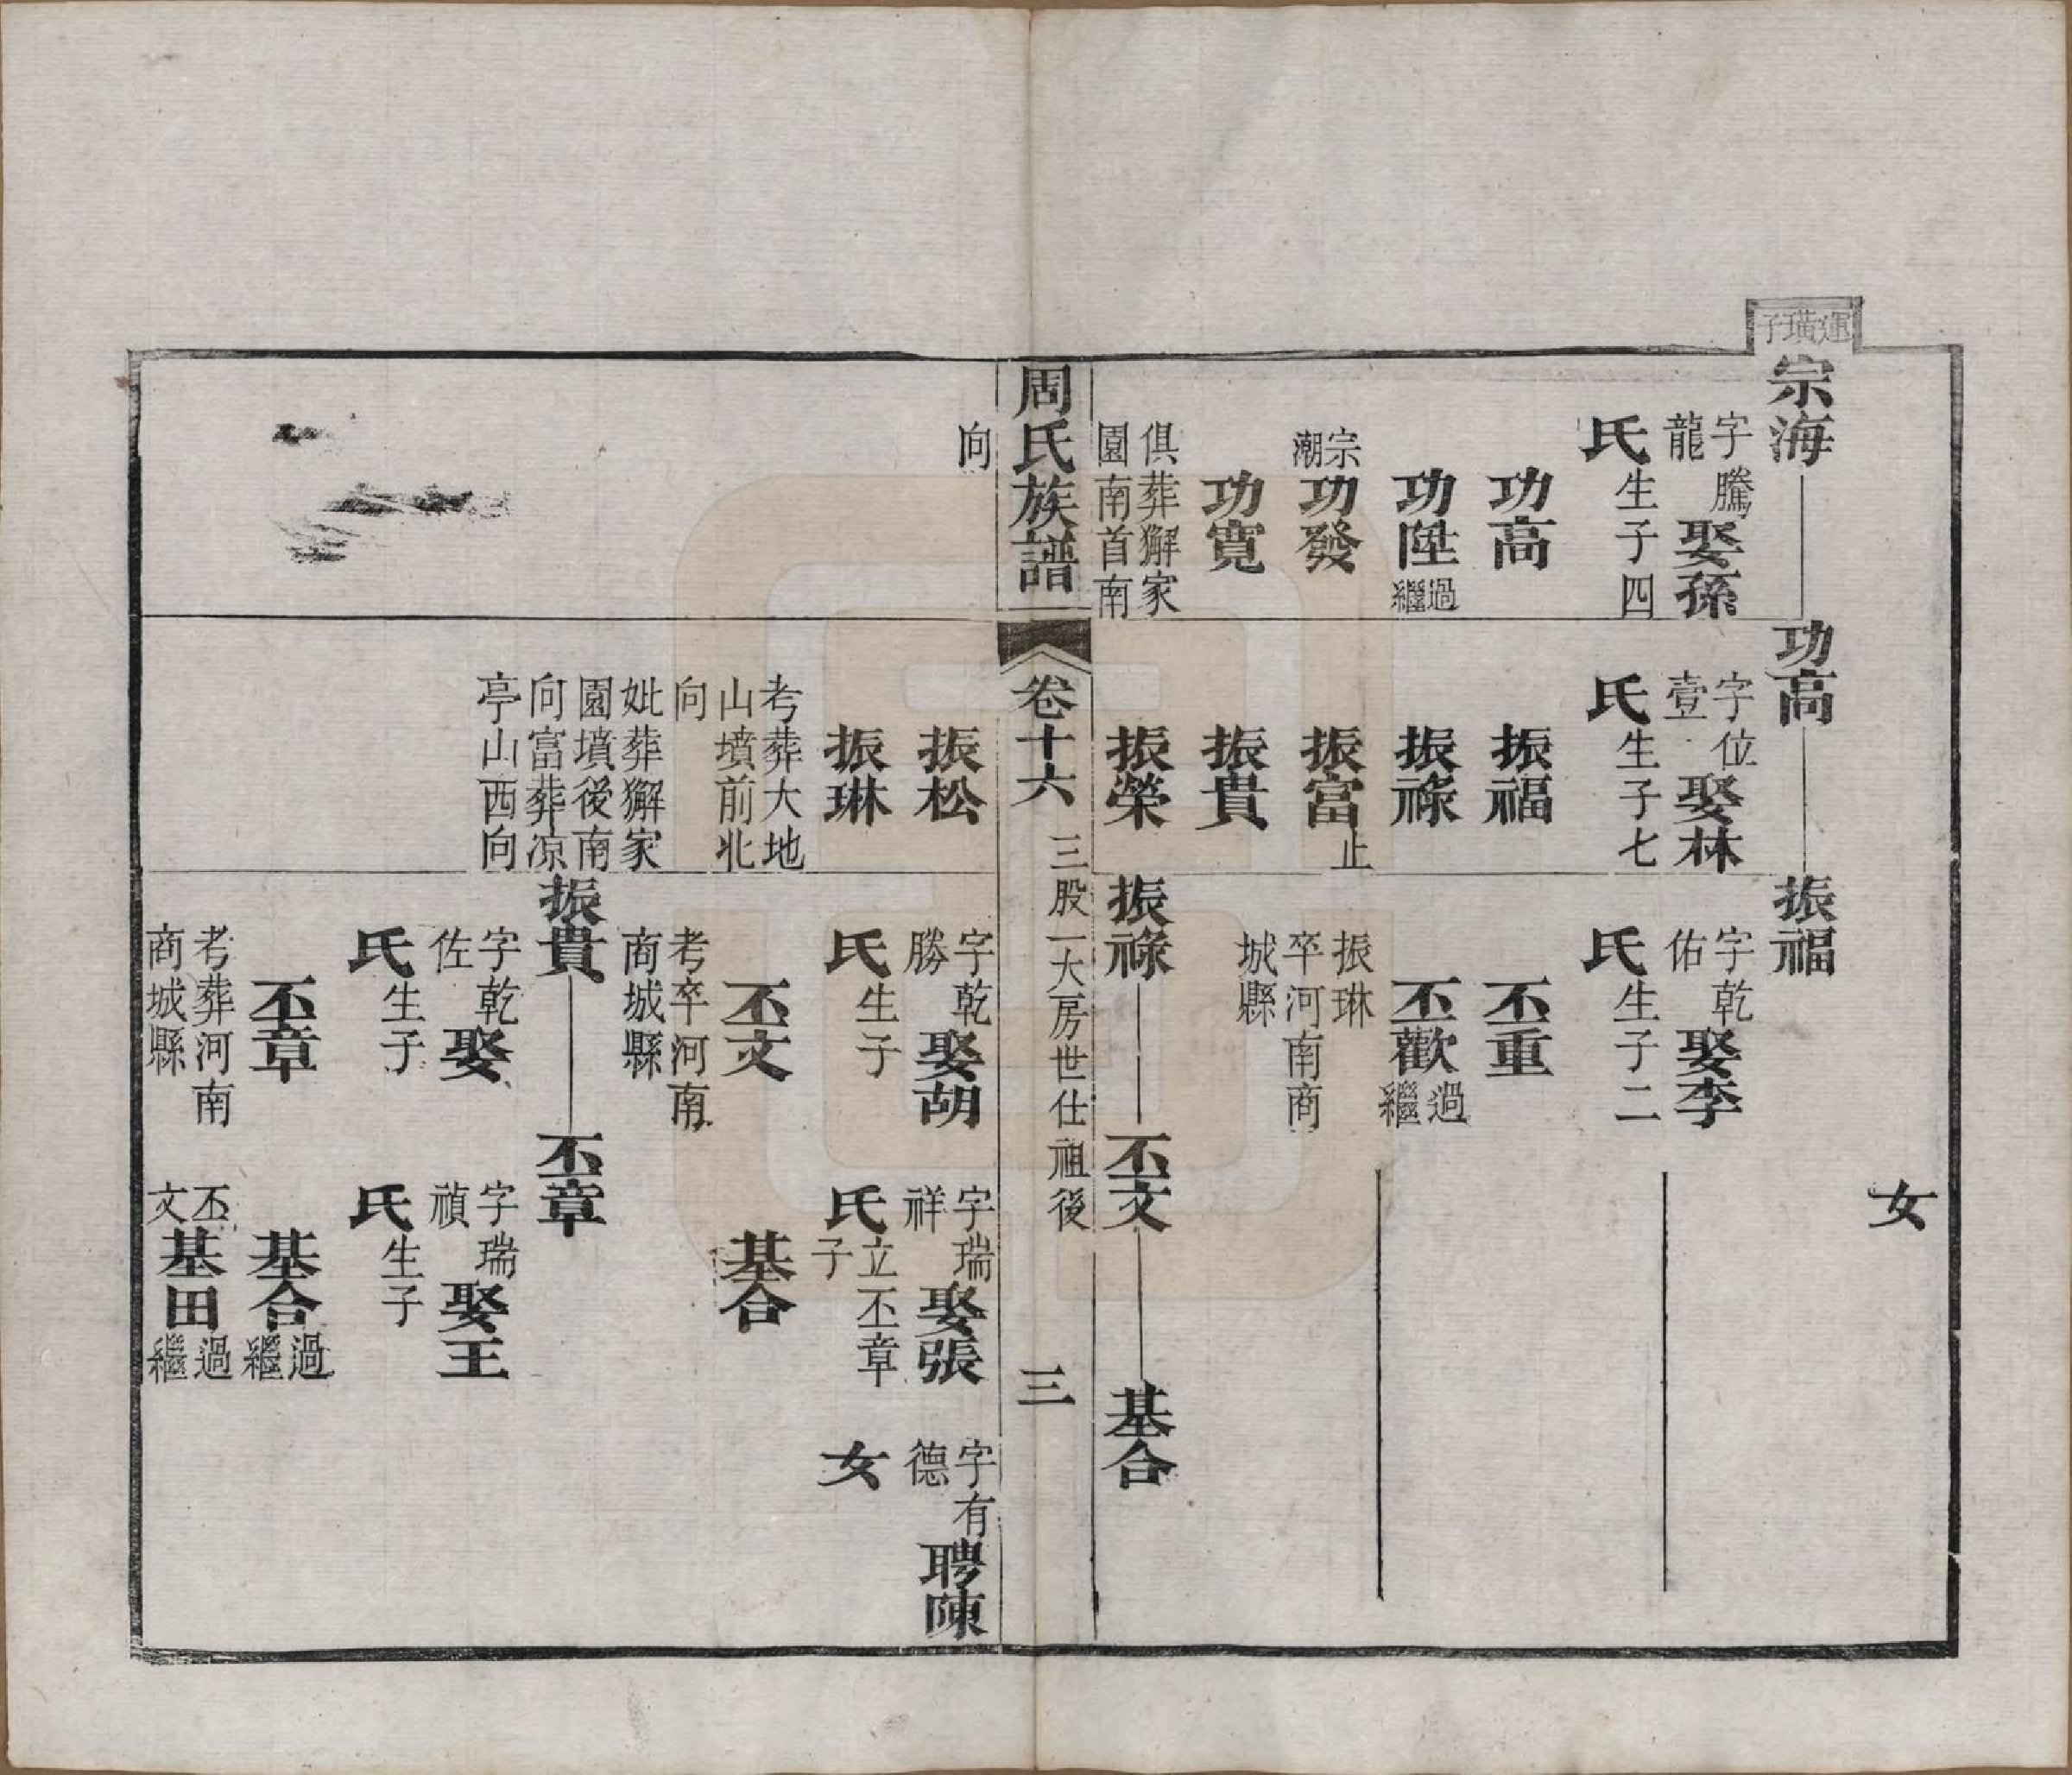 女
運璜子
宗海
功高
振福
字騰
龍
娶孫
氏
生子四
功高
功陞
過繼
宗潮
功發
功寬
俱葬獬家
園南首南
字位
壹
娶林
氏
生子七
振福
振祿
振富
止
振貴
振榮
字乾
佑
娶李
氏
生子二
丕重
丕歡
過繼
振琳
卒河南商
城縣
振祿
丕文
基合
周氏族譜
卷十六
三股一大房世仕祖後
三
向
振松
振琳
考葬大地
山墳前北
向
妣葬獬家
園墳後南
向富葬凉
亭山西向
字乾
勝
娶胡
氏
生子
丕文
考卒河南
商城縣
字瑞
祥
娶張
氏
立丕章
子
基合
字有
德
聘陳
女
振貴
丕章
字乾
佐
娶
氏
生子
丕章
考葬河南
商城縣
字瑞
禎
娶王
氏
生子
基合
過繼
丕文
基田
過繼